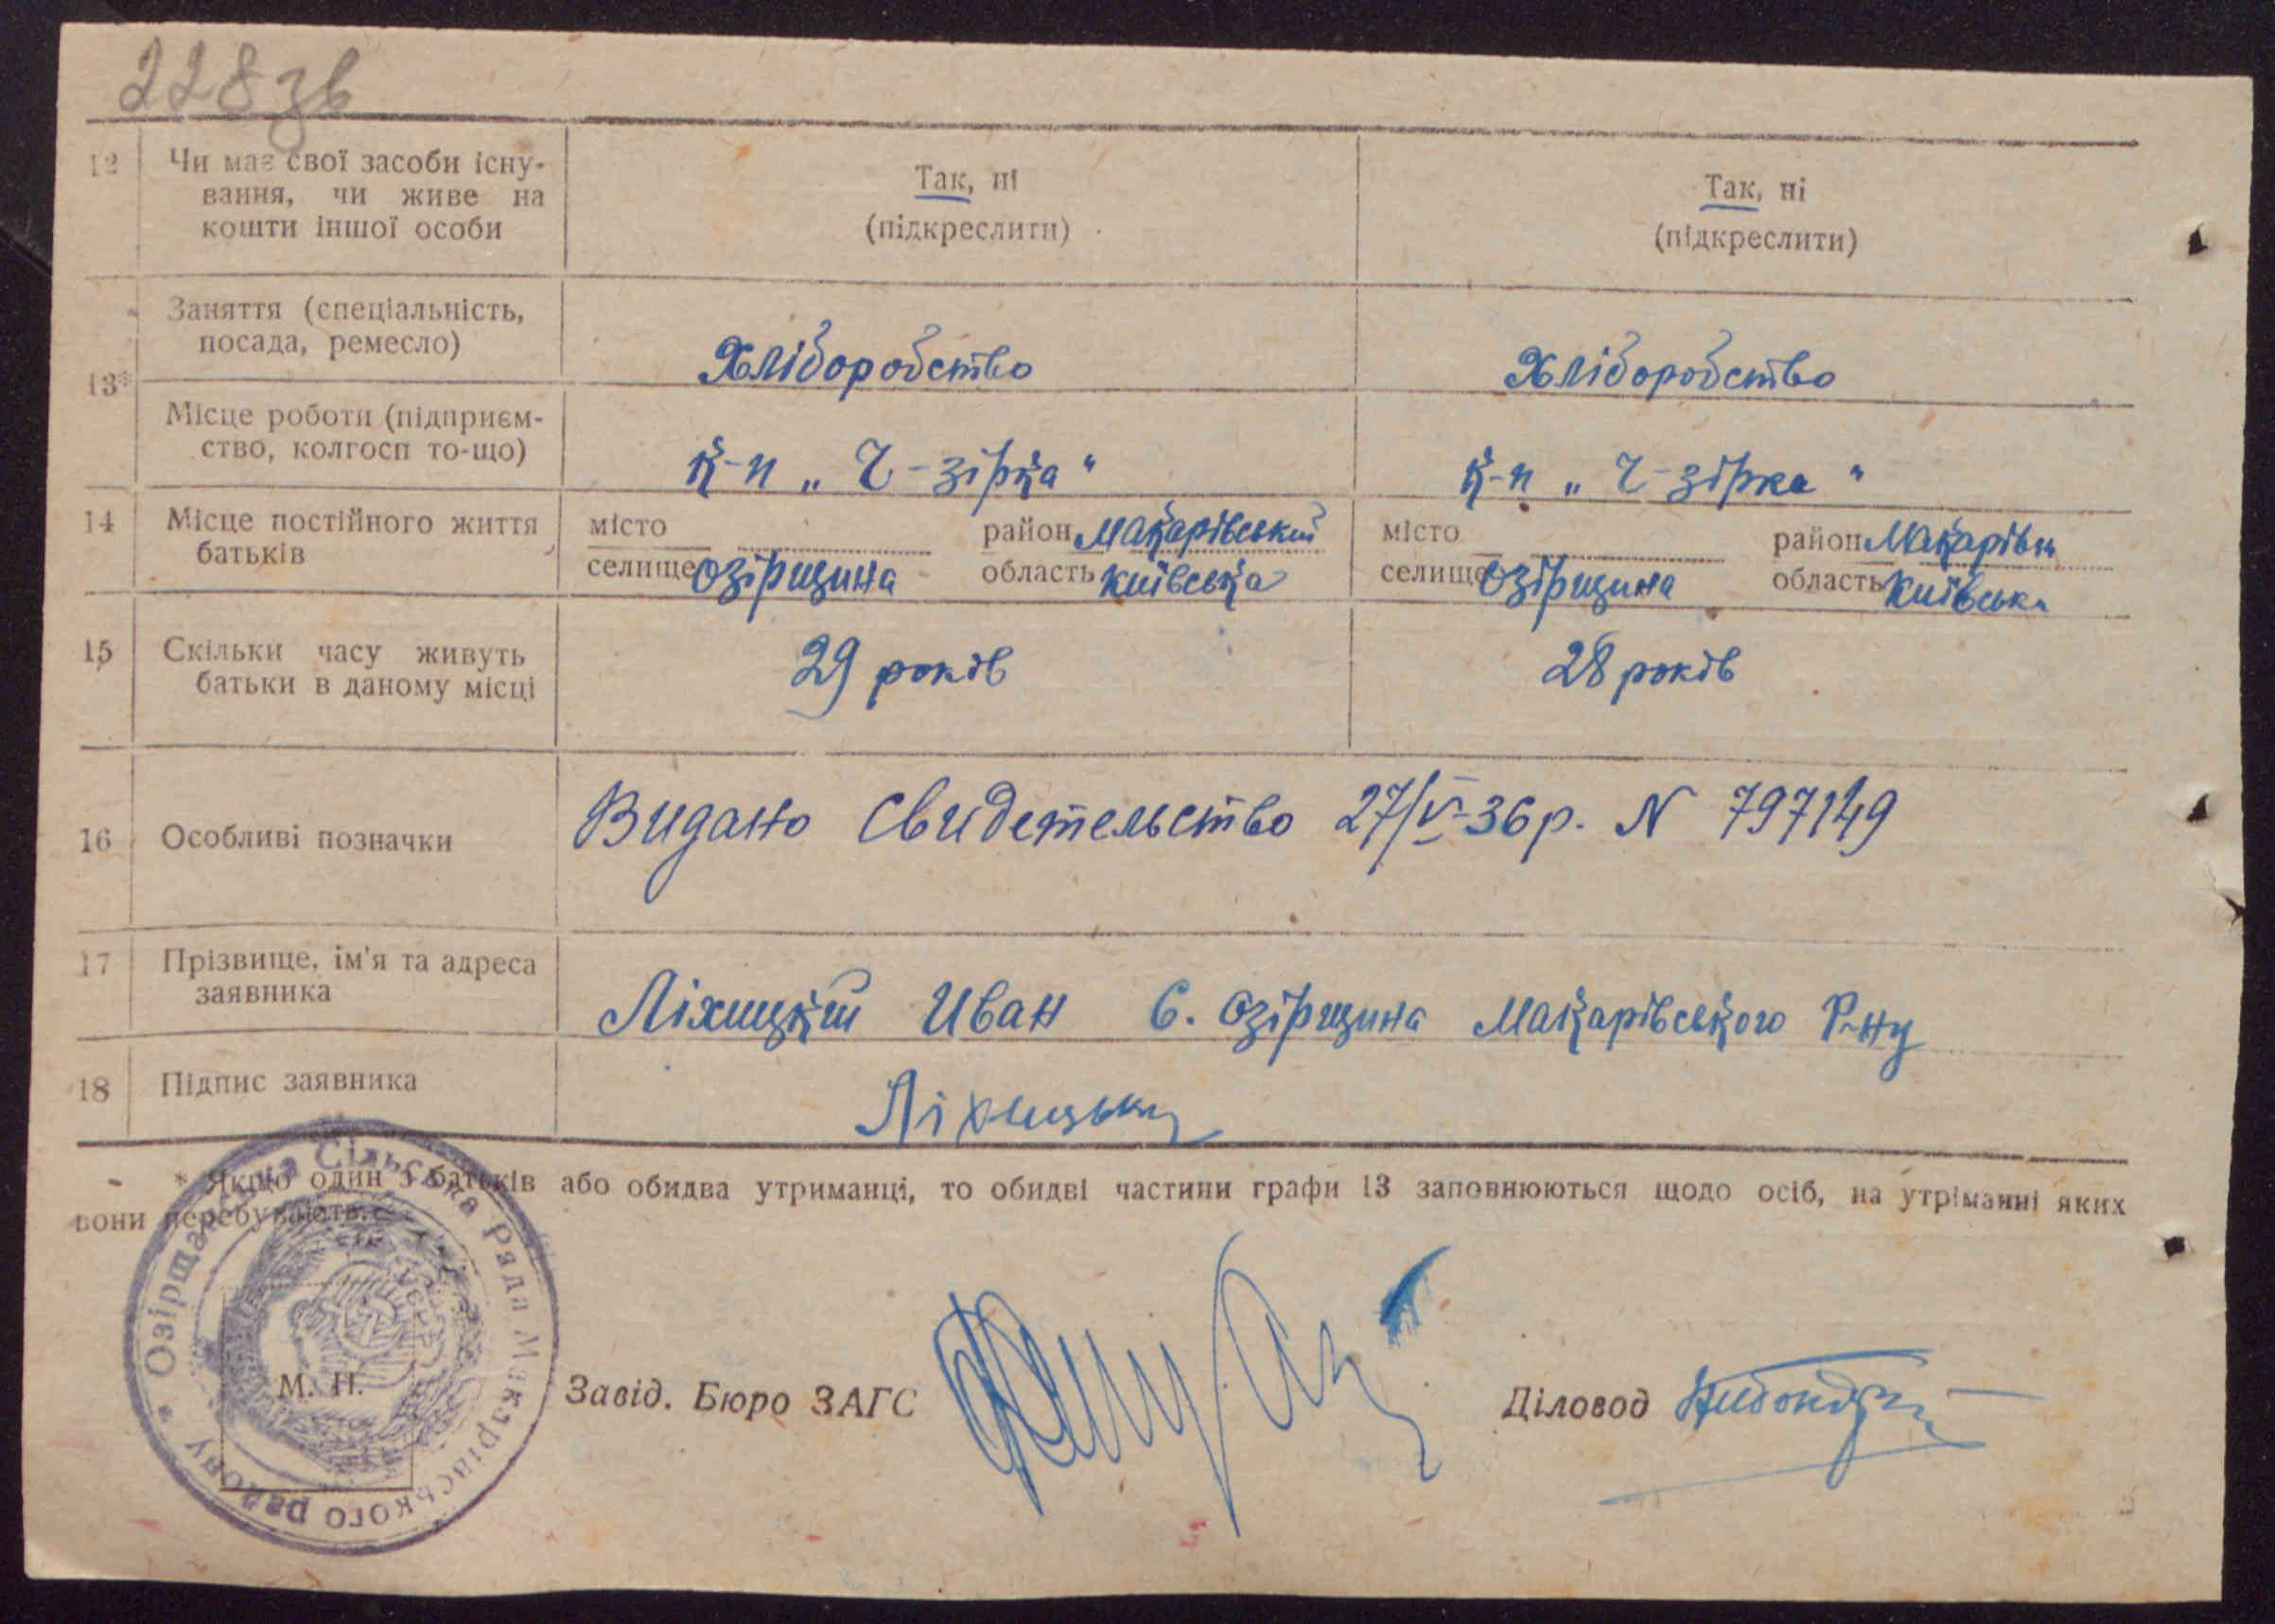 228зв
12 Чи має свої засоби існу-
вання, чи живе на
кошти іншої особи
Так, ні
(підкреслити)
Так, ні
(підкреслити)
13*
Заняття (спеціальність,
посада, ремесло)
Хліборобство
Хліборобство
Місце роботи (підприєм-
ство, колгосп то-що)
к-п „Ч-зірка“
к-п „Ч-зірка“
14 Місце постійного життя
батьків
місто район Макарівський
селище Озірщина область Київська
місто район Макарівськ
селище Озірщина область Київська
15 Скільки часу живуть
батьки в даному місці
29 років
28 років
16 Особливі позначки
Видано Свидетельство 27/V-36р. N 797149
17 Прізвище, ім'я та адреса
заявника
Ліхицкий Иван С. Озірщина Макарівського Р-ну
18 Підпис заявника
Ліхицьки
* Якщо один з батьків або обидва утриманці, то обидві частини графи 13 заповнюються щодо осіб, на утріманні яких
вони перебувають.
* Озірщанська Сільська Рада Макарівського району
УСРР
М. П.
Завід. Бюро ЗАГС
Діловод